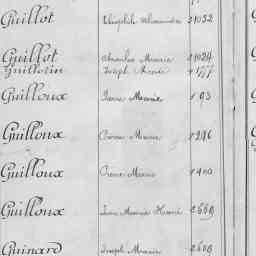 Guillot Théophile Alexandre 1052
Guillot Charles Marie 1024
Guillotin Joseph Marie 177
Guilloux Pierre Marie 93
Guilloux Pierre Marie 246
Guilloux Pierre Marie 400
Guilloux Jean Marie Henri 669
Guinard Joseph Marie 609